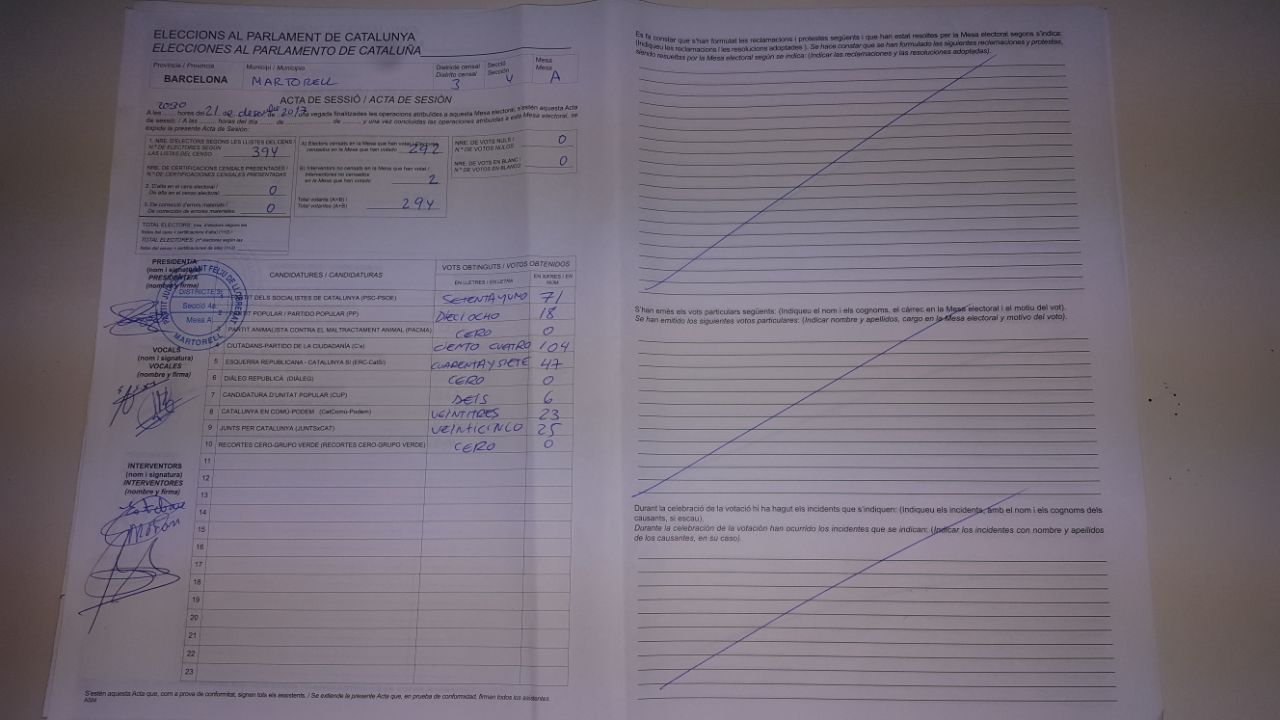 ELECCIONS AL PARLAMENT DE CATALUNYA
ELECCIONES AL PARLAMENTO DE CATALUÑA
Província / Provincia
BARCELONA
Municipi / Municipio
MARTORELL
Districte censal
Distrito censal
3
Secció
Sección
4
Mesa
Mesa
A
ACTA DE SESSIÓ / ACTA DE SESIÓN
A les 2030 hores del 21 de desembre de 2017 una vegada finalitzades les operacions atribuïdes a aquesta Mesa electoral, s'estén aquesta Acta
de sessió. / A las ...... horas del día ...... de ...... de ...... y una vez concluidas las operaciones atribuidas a esta Mesa electoral, se
expide la presente Acta de Sesión:
1. NRE. D'ELECTORS SEGONS LES LLISTES DEL CENS /
N.º DE ELECTORES SEGÚN
LAS LISTAS DEL CENSO 394
NRE. DE CERTIFICACIONS CENSALS PRESENTADES /
N.º DE CERTIFICACIONES CENSALES PRESENTADAS
2. D'alta en el cens electoral /
De alta en el censo electoral: 0
3. De correcció d'errors materials /
De corrección de errores materiales: 0
TOTAL ELECTORS:
TOTAL ELECTORES:
A) Electors censats en la Mesa que han votat / Electores
censados en la Mesa que han votado 292
B) Interventors no censats en la Mesa que han votat /
Interventores no censados
en la Mesa que han votado 2
Total votants (A+B) /
Total votantes (A+B) 294
NRE. DE VOTS NULS /
N.º DE VOTOS NULOS 0
NRE. DE VOTS EN BLANC /
N.º DE VOTOS EN BLANCO 0
PRESIDENT/A
(nom i signatura)
PRESIDENTE/A
(nombre y firma)
DISTRICTE 3
Secció 4a
Mesa A
MARTORELL
VOCALS
(nom i signatura)
VOCALES
(nombre y firma)
INTERVENTORS
(nom i signatura)
INTERVENTORES
(nombre y firma)
Esteban
Morón
CANDIDATURES / CANDIDATURAS
VOTS OBTINGUTS / VOTOS OBTENIDOS
EN LLETRES / EN LETRA
EN XIFRES / EN NÚM
PARTIT DELS SOCIALISTES DE CATALUNYA (PSC-PSOE) SETENTA Y UNO 71
PARTIT POPULAR / PARTIDO POPULAR (PP) DIECIOCHO 18
PARTIT ANIMALISTA CONTRA EL MALTRACTAMENT ANIMAL (PACMA) CERO 0
CIUTADANS-PARTIDO DE LA CIUDADANÍA (C's) CIENTO CUATRO 104
5 ESQUERRA REPUBLICANA - CATALUNYA SÍ (ERC-CatSí) CUARENTA Y SIETE 47
6 DIÀLEG REPUBLICÀ (DIÀLEG) CERO 0
7 CANDIDATURA D'UNITAT POPULAR (CUP) SEIS 6
8 CATALUNYA EN COMÚ-PODEM (CatComú-Podem) VEINTITRES 23
9 JUNTS PER CATALUNYA (JUNTSxCAT) VEINTICINCO 25
10 RECORTES CERO-GRUPO VERDE (RECORTES CERO-GRUPO VERDE) CERO 0
11
12
13
14
15
16
17
18
19
20
21
22
23
S'estén aquesta Acta que, com a prova de conformitat, signen tots els assistents. / Se extiende la presente Acta que, en prueba de conformidad, firman todos los asistentes.
Es fa constar que s'han formulat les reclamacions i protestes següents i que han estat resoltes per la Mesa electoral segons s'indica:
(Indiqueu les reclamacions i les resolucions adoptades). Se hace constar que se han formulado las siguientes reclamaciones y protestas,
siendo resueltas por la Mesa electoral según se indica: (Indicar las reclamaciones y las resoluciones adoptadas).
S'han emès els vots particulars següents. (Indiqueu el nom i els cognoms, el càrrec en la Mesa electoral i el motiu del vot).
Se han emitido los siguientes votos particulares: (Indicar nombre y apellidos, cargo en la Mesa electoral y motivo del voto).
Durant la celebració de la votació hi ha hagut els incidents que s'indiquen: (Indiqueu els incidents, amb el nom i els cognoms dels
causants, si escau).
Durante la celebración de la votación han ocurrido los incidentes que se indican: (Indicar los incidentes con nombre y apellidos
de los causantes, en su caso).